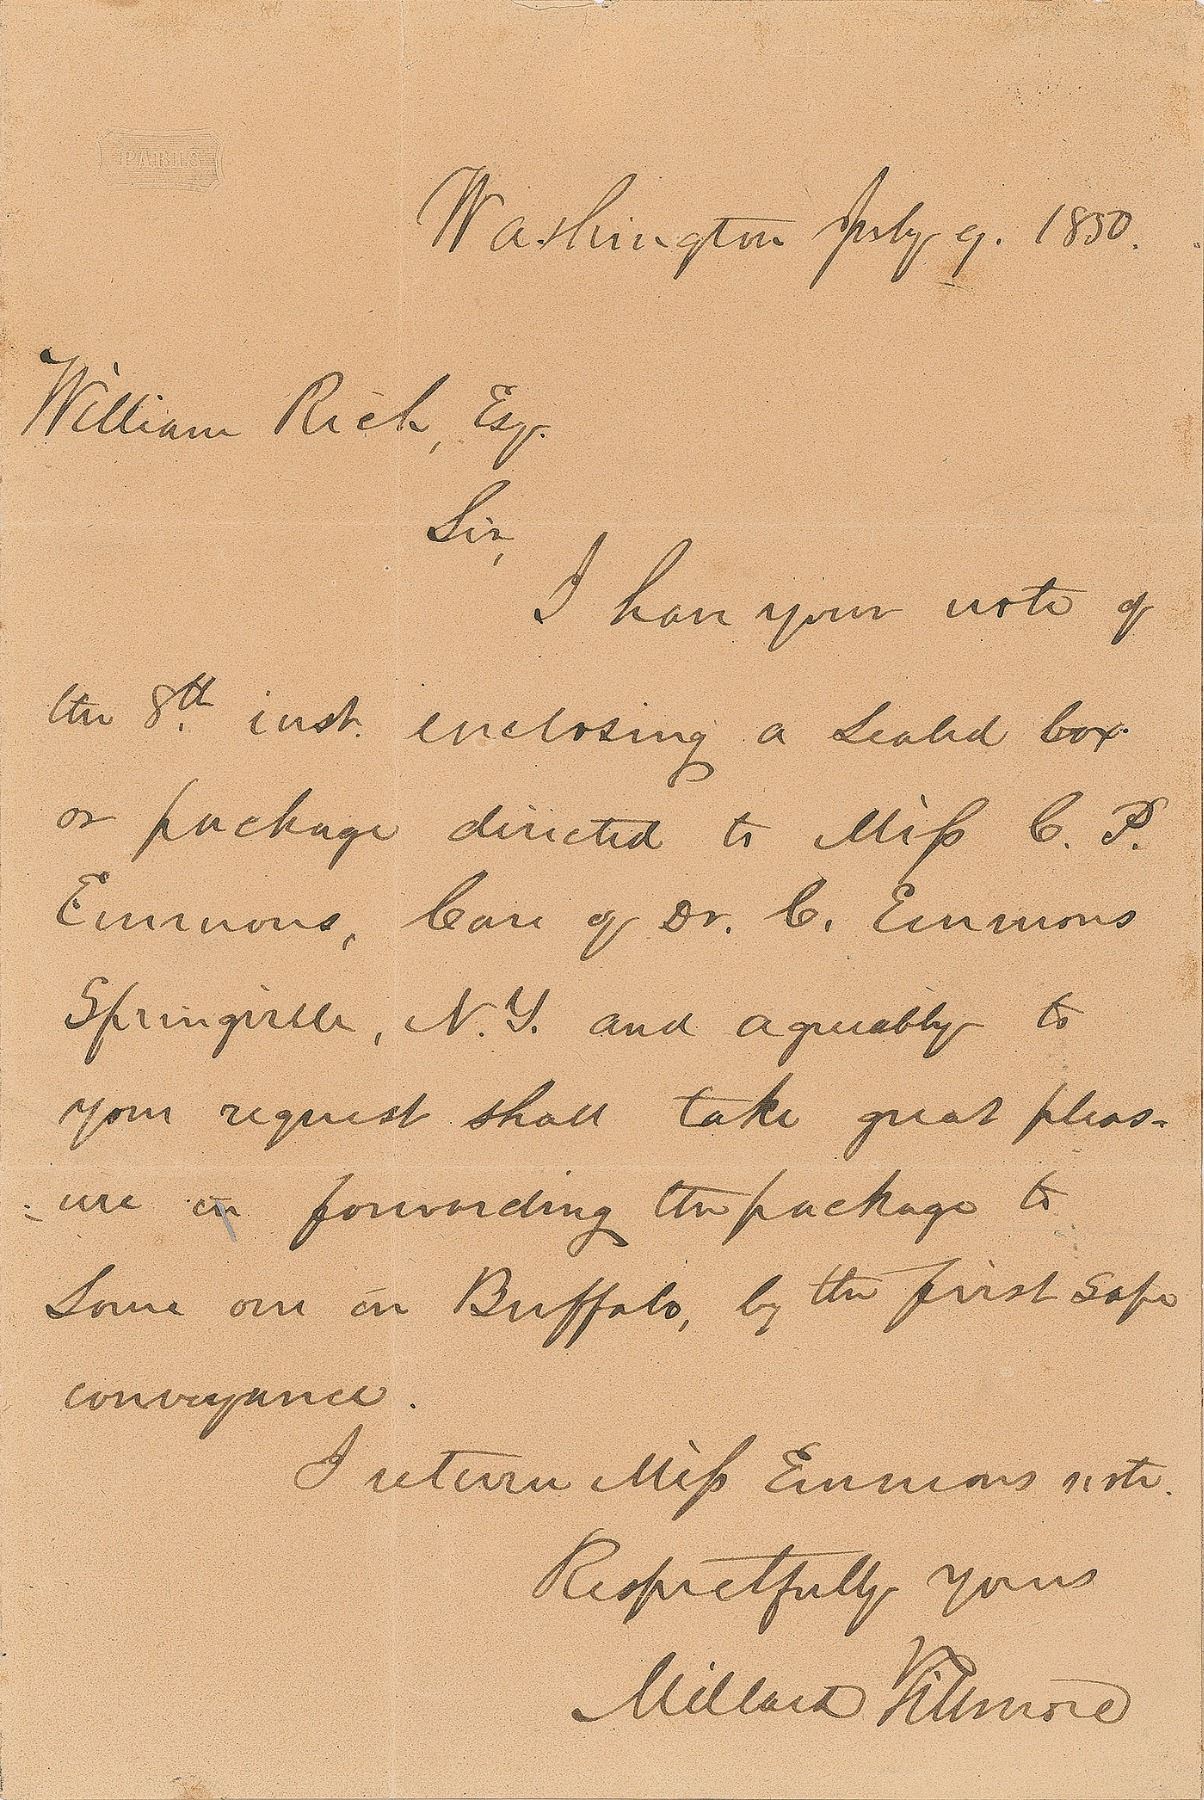 PARIS
Washington July 9. 1850.
William Rich, Esq.
Sir,
I have your note of
the 8th. inst. enclosing a sealed box
or package directed to Miss C. P.
Emmons, Care of Dr. C. Emmons
Springville, N.Y. and agreeably to
your request shall take great pleas-
-ure in forwarding the package to
some one in Buffalo, by the first safe
conveyance.
I return Miss Emmons note.
Respectfully yours
Millard Fillmore